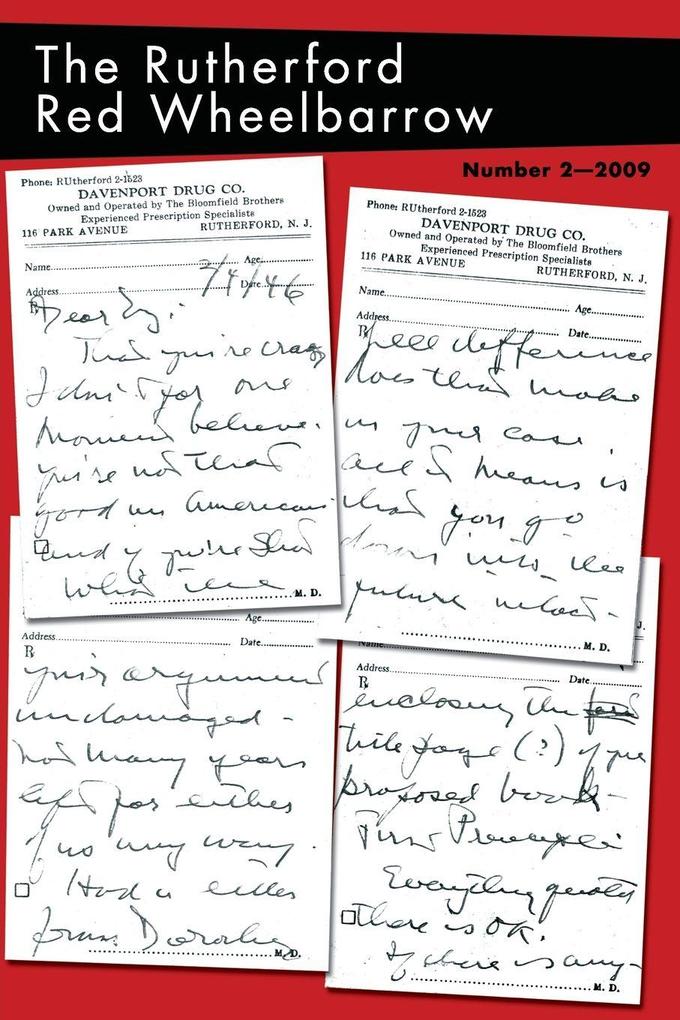 The Rutherford
Red Wheelbarrow
Number 2—2009
Phone: RUtherford 2-1523
DAVENPORT DRUG CO.
Owned and Operated by The Bloomfield Brothers
Experienced Prescription Specialists
116 PARK AVENUE RUTHERFORD, N. J.
Name Age
Address Date 7/4/46
Dear
That you're crazy
I don't for one
moment believe.
you're not that
good an American
and if you're shot
what the
M. D.
Phone: RUtherford 2-1523
DAVENPORT DRUG CO.
Owned and Operated by The Bloomfield Brothers
Experienced Prescription Specialists
116 PARK AVENUE RUTHERFORD, N. J.
Name Age
Address Date
℞
hell difference
does that make
in your case.
all it means is
that you go
down into the
future intact-
M. D.
Age
Address Date
℞
your argument
undamaged -
not many years
left for either
of us any way.
Had a letter
from Dorothy
M. D.
J.
Name
Address Date
℞
enclosing the
title page (?) of your
proposed book-
First
Everything quoted
there is OK.
If there is any-
M. D.